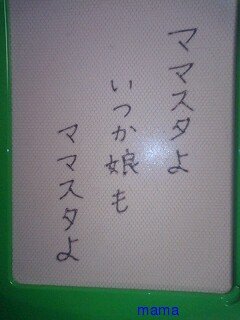 ママスタよ
いつか娘も
ママスタよ
mama